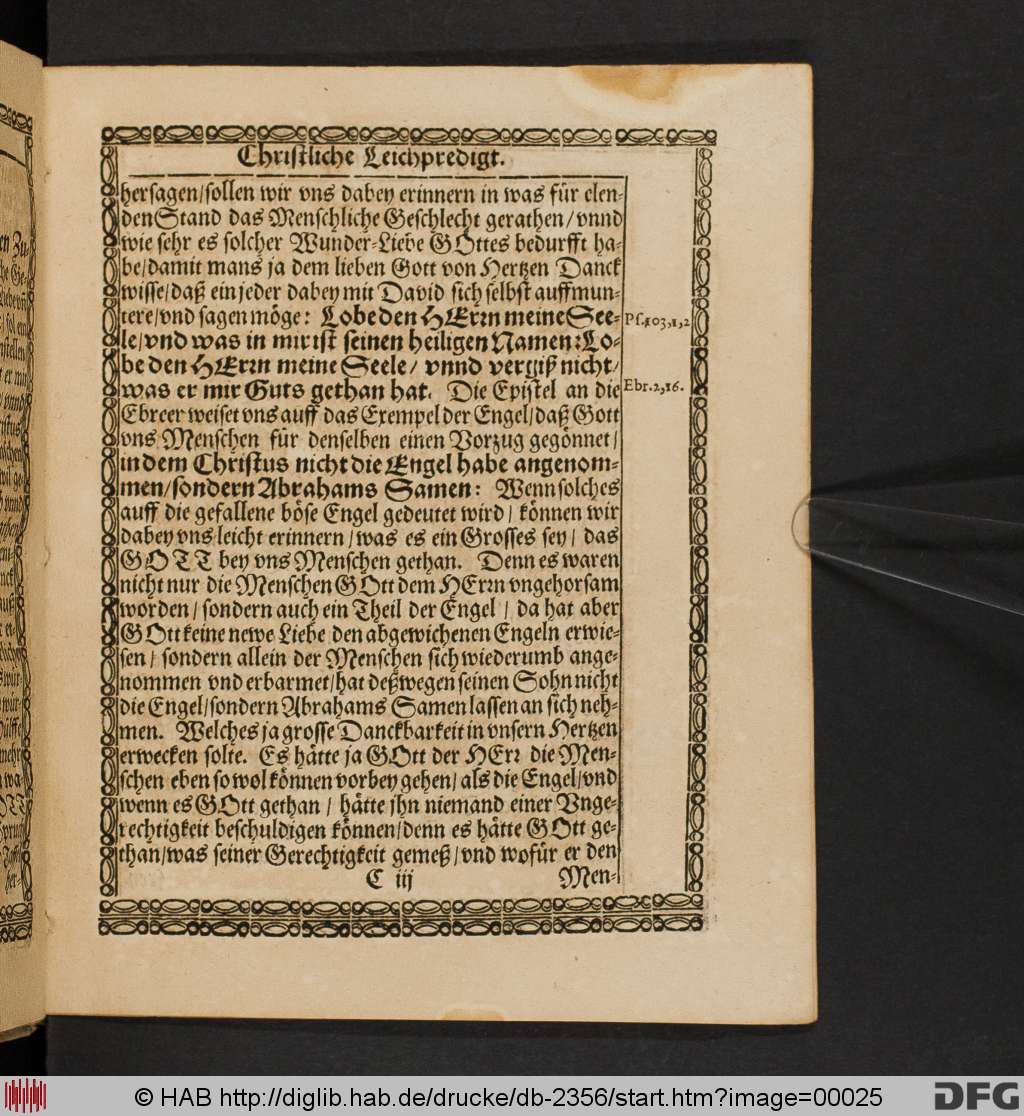 Christliche Leichpredigt.
hersagen/sollen wir vns dabey erinnern in was für elen-
den Stand das Menschliche Geschlecht gerathen/vnnd
wie sehr es solcher Wunder-Liebe GOttes bedurfft ha-
be/damit mans ja dem lieben Gott von Hertzen Danck
wisse/daß ein jeder dabey mit David sich selbst auffmun-
tere/vnd sagen möge: Lobe den HErrn meine See-
Ps.103,1,2
le/vnd was in mir ist seinen heiligen Namen: Lo-
be den HErrn meine Seele/ vnnd vergiß nicht/
was er mir Guts gethan hat. Die Epistel an die
Ebr.2,16.
Ebreer weiset vns auff das Exempel der Engel/daß Gott
vns Menschen für denselben einen Vorzug gegönnet/
in dem Christus nicht die Engel habe angenom-
men/sondern Abrahams Samen: Wenn solches
auff die gefallene böse Engel gedeutet wird/ können wir
dabey vns leicht erinnern/was es ein Grosses sey/ das
GOTT bey vns Menschen gethan. Denn es waren
nicht nur die Menschen GOtt dem HErrn vngehorsam
worden/sondern auch ein Theil der Engel/ da hat aber
GOtt keine newe Liebe den abgewichenen Engeln erwie-
sen/ sondern allein der Menschen sich wiederumb ange-
nommen vnd erbarmet/hat deßwegen seinen Sohn nicht
die Engel/sondern Abrahams Samen lassen an sich neh-
men. Welches ja grosse Danckbarkeit in vnsern Hertzen
erwecken solte. Es hätte ja GOtt der HErr die Men-
schen eben so wol können vorbey gehen/als die Engel/vnd
wenn es GOtt gethan/ hätte jhn niemand einer Vnge-
rechtigkeit beschuldigen können/denn es hätte GOtt ge-
than/was seiner Gerechtigkeit gemeß/vnd wofür er den
C iij
Men-
© HAB http://diglib.hab.de/drucke/db-2356/start.htm?image=00025
DFG